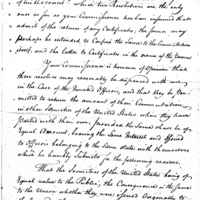 of his Account" which two Resolutions are the only
ones as far as your Commissioner has been informed that
admit of the return of any Certificates, the former may
perhaps be extended to confine the same to the Commutation
itself, and the latter to Certificates in the name of the Owners
Your Commissioner is however of Opinion that
these resolves may reasonably be dispensed with
in the Case of the Invalid Officers, and that they be
mitted to return the amount of their Commutation
in other Securities of the United States where they have
parted with their own provided the same shall be of
Equal Amount, bearing the same Interest and
to Officers belonging to the same state with themselves
which he humbly submits for the following reasons.
That the Securities of the United States being of
Equal value to the Public, the Consequence is the same
to the Union whether they were issued Originally to